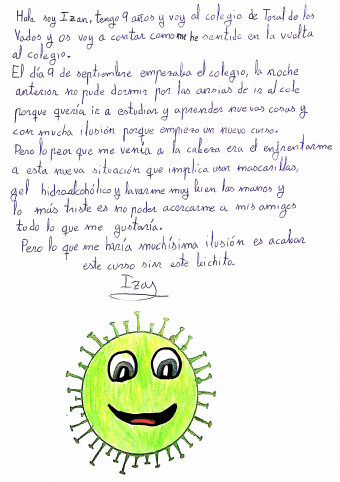 Hola soy Izan, tengo 9 años y voy al colegio de Toral de los
Vados y os voy a contar como me he sentido en la vuelta
al colegio.
El día 9 de septiembre empezaba el colegio, la noche
anterior no pude dormir por las ansias de ir al cole
porque quería ir a estudiar y aprender nuevas cosas y
con mucha ilusión porque empiezo un nuevo curso.
Pero lo peor que me venía a la cabeza era el enfrentarme
a esta nueva situación que implica usar mascarillas,
gel hidroalcohólico y lavarme muy bien las manos y
lo más triste es no poder acercarme a mis amigos
todo lo que me gustaría.
Pero lo que me haría muchísima ilusión es acabar
este curso sin este bichito.
Izan